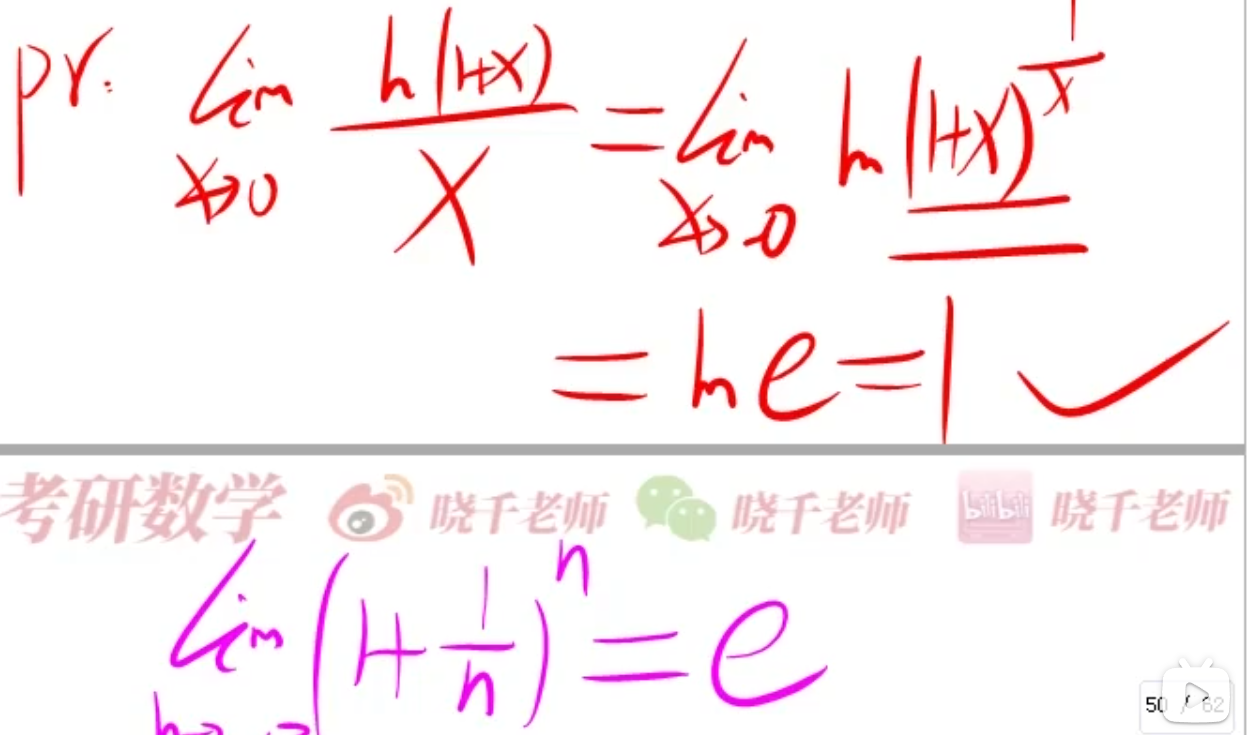 pr: lim x→0 ln(1+x)/x = lim x→0 ln(1+x)^(1/x)
= ln e = 1 ✓
考研数学 晓千老师 晓千老师 bilibili 晓千老师
lim n→∞ (1+1/n)^n = e
50 / 62